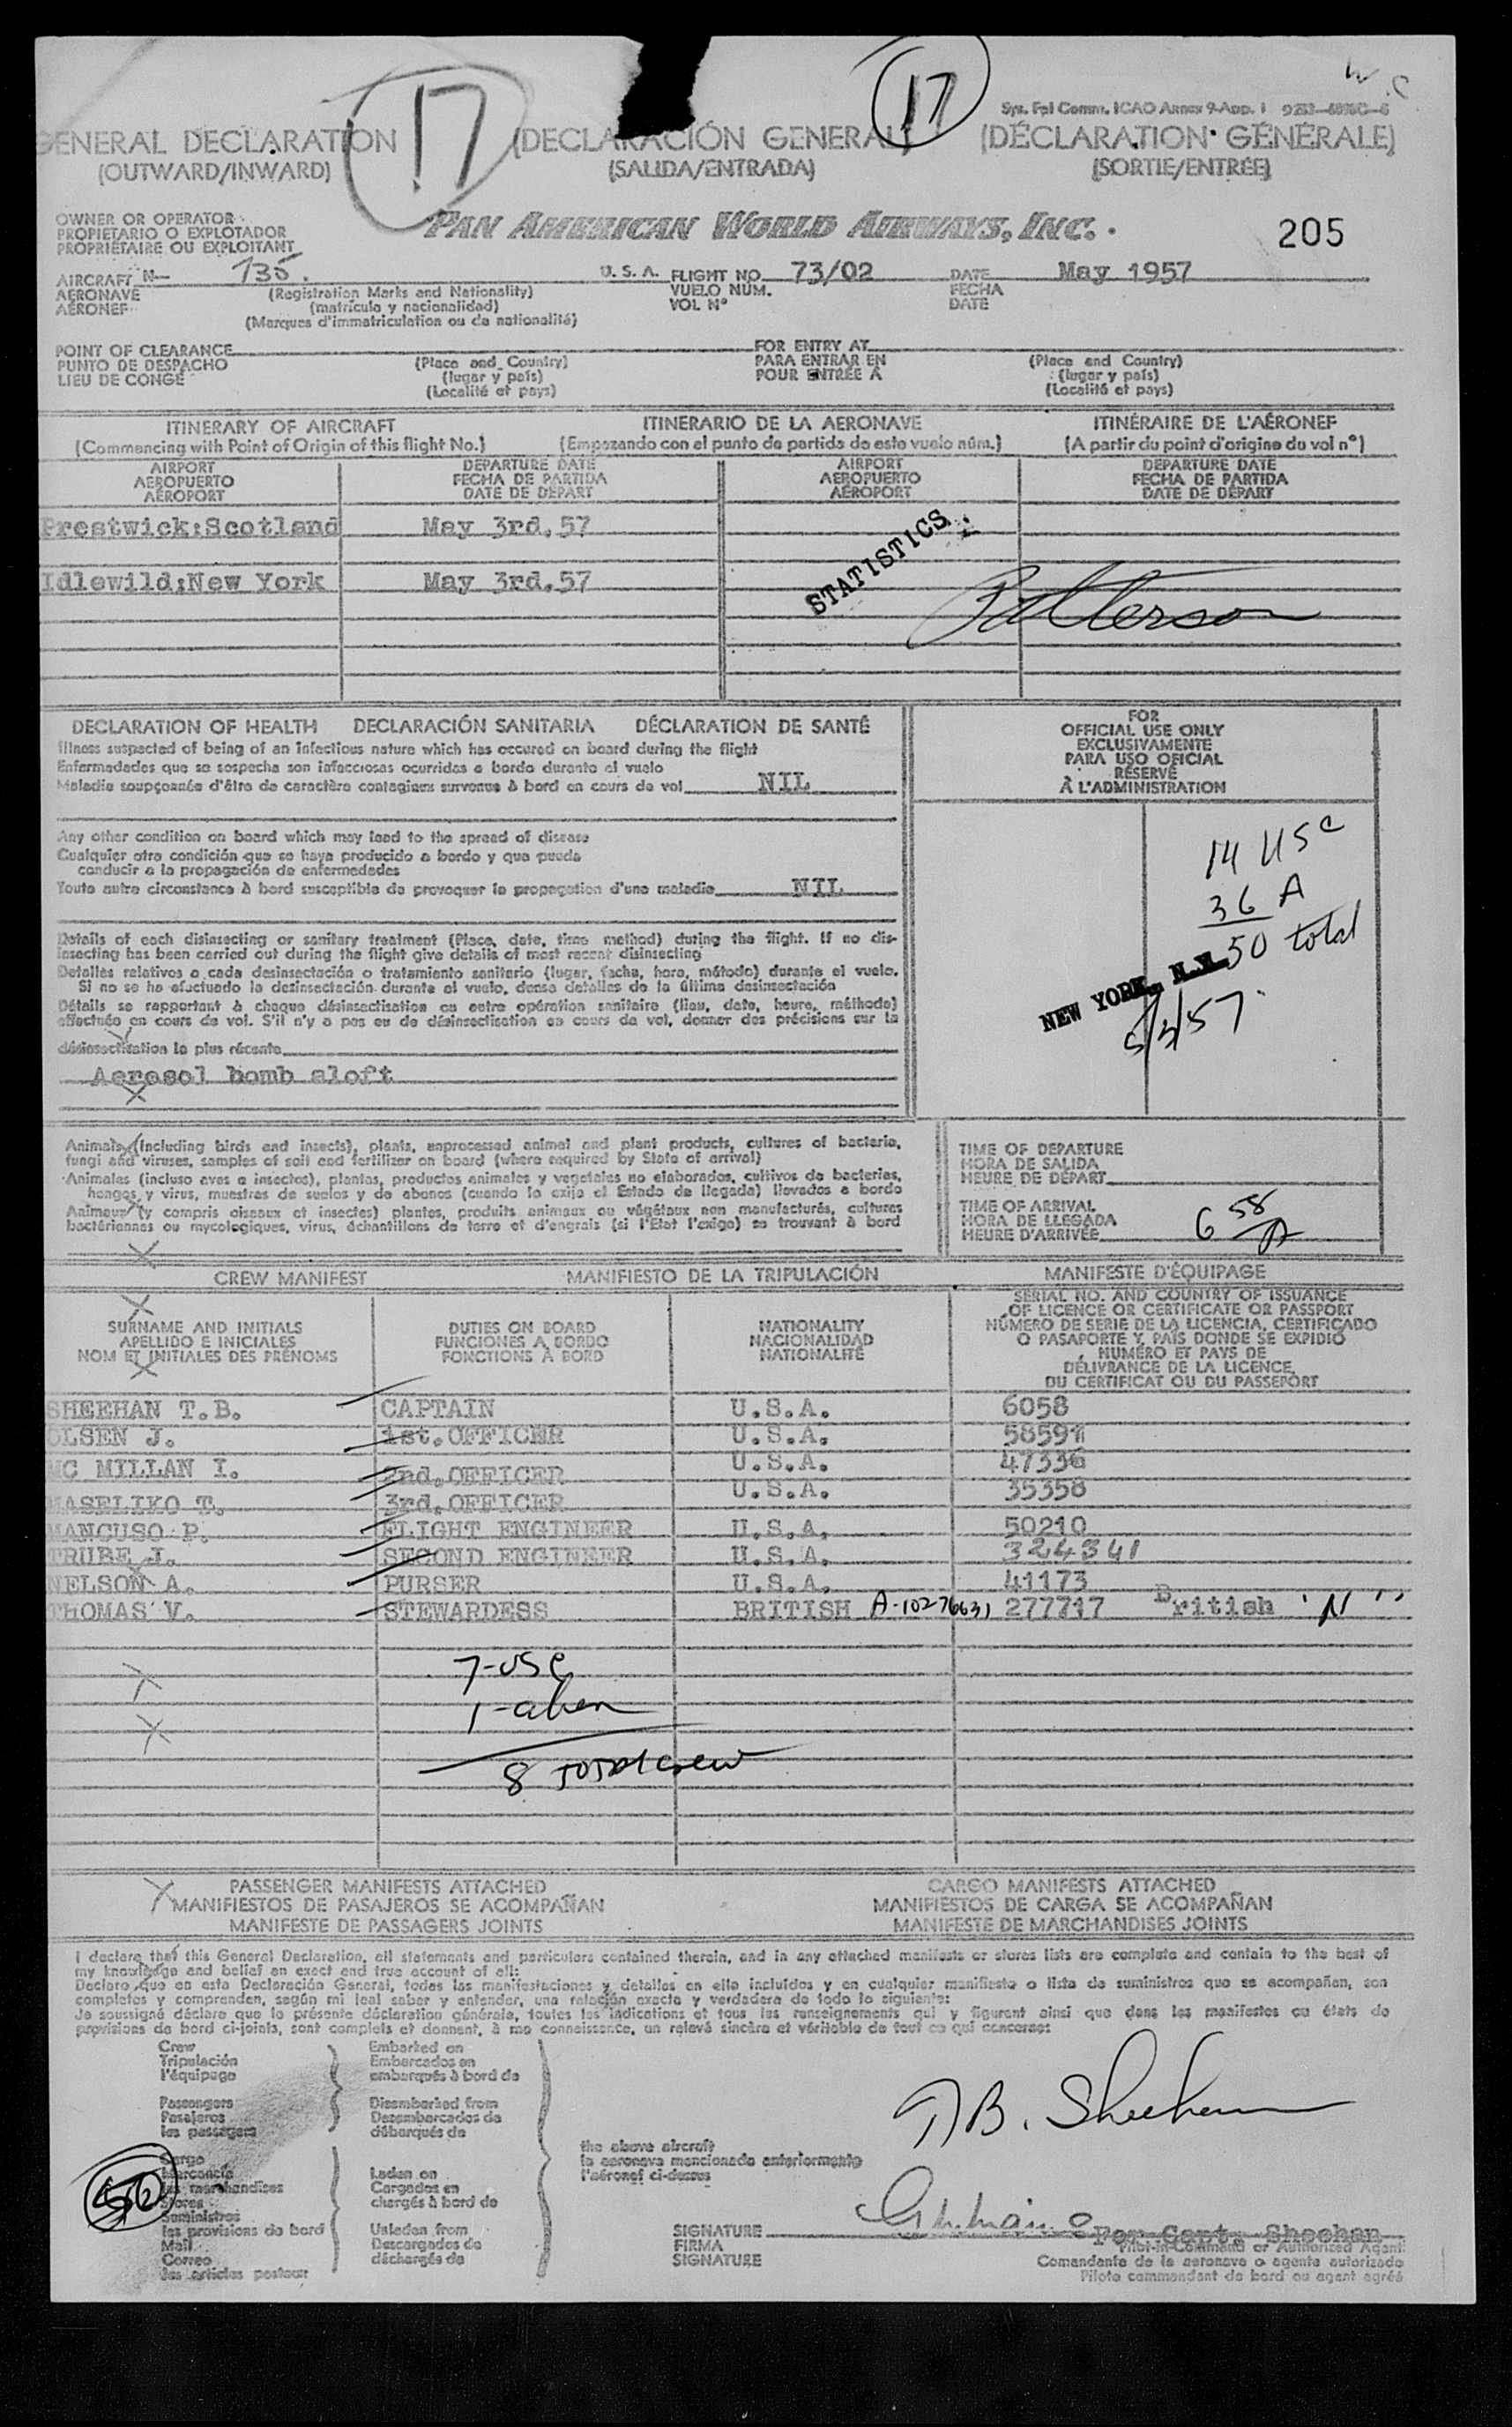 17
17
W.C
Sys. Fpl Comm. ICAO Annex 9-App. 1
GENERAL DECLARATION (DECLARACIÓN GENERAL) (DÉCLARATION GÉNÉRALE)
(OUTWARD/INWARD) (SALIDA/ENTRADA) (SORTIE/ENTRÉE)
OWNER OR OPERATOR
PROPIETARIO O EXPLOTADOR PAN AMERICAN WORLD AIRWAYS, INC. 205
PROPRIÉTAIRE OU EXPLOITANT
AIRCRAFT N— 735. U. S. A. FLIGHT NO. 73/02 DATE May 1957
AERONAVE (Registration Marks and Nationality) VUELO NÚM. FECHA
AÉRONEF (matrícula y nacionalidad) VOL Nº DATE
(Marques d'immatriculation ou de nationalité)
POINT OF CLEARANCE FOR ENTRY AT
PUNTO DE DESPACHO (Place and Country) PARA ENTRAR EN (Place and Country)
LIEU DE CONGÉ (lugar y país) POUR ENTRÉE À (lugar y país)
(Localité et pays) (Localité et pays)
ITINERARY OF AIRCRAFT ITINERARIO DE LA AERONAVE ITINÉRAIRE DE L'AÉRONEF
(Commencing with Point of Origin of this flight No.) (Empezando con el punto de partida de este vuelo núm.) (A partir du point d'origine du vol nº)
AIRPORT DEPARTURE DATE AIRPORT DEPARTURE DATE
AEROPUERTO FECHA DE PARTIDA AEROPUERTO FECHA DE PARTIDA
AÉROPORT DATE DE DÉPART AÉROPORT DATE DE DÉPART
Prestwick:Scotland May 3rd.57
STATISTICS
Idlewild:New York May 3rd.57
Patterson
DECLARATION OF HEALTH DECLARACIÓN SANITARIA DÉCLARATION DE SANTÉ
Illness suspected of being of an infectious nature which has occured on board during the flight
Enfermedades que se sospecha son infecciosas ocurridas a bordo durante el vuelo
Maladie soupçonnée d'être de caractère contagieux survenue à bord en cours de vol NIL
Any other condition on board which may lead to the spread of disease
Cualquier otra condición que se haya producido a bordo y que pueda
conducir a la propagación de enfermedades
Toute autre circonstance à bord susceptible de provoquer la propagation d'une maladie NIL
Details of each disinsecting or sanitary treatment (Place, date, time method) during the flight. If no dis-
insecting has been carried out during the flight give details of most recent disinsecting
Detalles relativos a cada desinsectación o tratamiento sanitario (lugar, fecha, hora, método) durante el vuelo.
Si no se ha efectuado la desinsectación durante el vuelo, dense detalles de la última desinsectación
Détails se rapportant à chaque désinsectisation ou autre opération sanitaire (lieu, date, heure, méthode)
effectuée en cours de vol. S'il n'y a pas eu de désinsectisation en cours de vol, donner des précisions sur la
désinsectisation la plus récente
Aerosol bomb aloft
FOR
OFFICIAL USE ONLY
EXCLUSIVAMENTE
PARA USO OFICIAL
RÉSERVÉ
À L'ADMINISTRATION
14 USC
36 A
50 total
NEW YORK, N.Y.
5/3/57
Animals (including birds and insects), plants, unprocessed animal and plant products, cultures of bacteria,
fungi and viruses, samples of soil and fertilizer on board (where required by State of arrival)
Animales (incluso aves e insectos), plantas, productos animales y vegetales no elaborados, cultivos de bacterias,
hongos y virus, muestras de suelos y de abonos (cuando lo exija el Estado de llegada) llevados a bordo
Animaux (y compris oiseaux et insectes) plantes, produits animaux ou végétaux non manufacturés, cultures
bactériennes ou mycologiques, virus, échantillons de terre et d'engrais (si l'Etat l'exige) se trouvant à bord
TIME OF DEPARTURE
HORA DE SALIDA
HEURE DE DÉPART
TIME OF ARRIVAL
HORA DE LLEGADA
HEURE D'ARRIVÉE 6 58 A
CREW MANIFEST MANIFIESTO DE LA TRIPULACIÓN MANIFESTE D'ÉQUIPAGE
SURNAME AND INITIALS
APELLIDO E INICIALES
NOM ET INITIALES DES PRÉNOMS
DUTIES ON BOARD
FUNCIONES A BORDO
FONCTIONS À BORD
NATIONALITY
NACIONALIDAD
NATIONALITÉ
SERIAL NO. AND COUNTRY OF ISSUANCE
OF LICENCE OR CERTIFICATE OR PASSPORT
NÚMERO DE SERIE DE LA LICENCIA, CERTIFICADO
O PASAPORTE Y PAÍS DONDE SE EXPIDIÓ
NUMÉRO ET PAYS DE
DÉLIVRANCE DE LA LICENCE,
DU CERTIFICAT OU DU PASSEPORT
SHEEHAN T.B. CAPTAIN U.S.A. 6058
OLSEN J. 1st.OFFICER U.S.A. 58591
MC MILLAN I. 2nd.OFFICER U.S.A. 47336
MASELIKO T. 3rd.OFFICER U.S.A. 35358
MANCUSO P. FLIGHT ENGINEER U.S.A. 50210
TRUBE J. SECOND ENGINEER U.S.A. 324341
NELSON A. PURSER U.S.A. 41173
THOMAS V. STEWARDESS BRITISH A-10276631 277717 British "N"
7-USC
1-alien
8 total crew
PASSENGER MANIFESTS ATTACHED CARGO MANIFESTS ATTACHED
MANIFIESTOS DE PASAJEROS SE ACOMPAÑAN MANIFIESTOS DE CARGA SE ACOMPAÑAN
MANIFESTE DE PASSAGERS JOINTS MANIFESTE DE MARCHANDISES JOINTS
I declare that this General Declaration, all statements and particulars contained therein, and in any attached manifests or stores lists are complete and contain to the best of
my knowledge and belief an exact and true account of all:
Declaro que en esta Declaración General, todas las manifestaciones y detalles en ella incluídos y en cualquier manifiesto o lista de suministros que se acompañan, son
completos y comprenden, según mi leal saber y entender, una relación exacta y verdadera de todo lo siguiente:
Je soussigné déclare que la présente déclaration générale, toutes les indications et tous les renseignements qui y figurent ainsi que dans les manifestes ou états de
provisions de bord ci-joints, sont complets et donnent, à ma connaissance, un relevé sincère et véritable de tout ce qui concerne:
Crew Embarked on
Tripulación Embarcados en
l'équipage embarqués à bord de
Passengers Disembarked from
Pasajeros Desembarcados de
les passagers débarqués de
Cargo
Mercancía Laden on
les marchandises Cargados en
Stores chargés à bord de
Suministros
les provisions de bord Unladen from
Mail Descargados de
Correo déchargés de
les articles postaux
50
the above aircraft
la aeronave mencionada anteriormente
l'aéronef ci-dessus
T.B. Sheehan
SIGNATURE For Capt. Sheehan
FIRMA Pilot-in-Command or Authorized Agent
SIGNATURE Comandante de la aeronave o agente autorizado
Pilote commandant de bord ou agent agréé